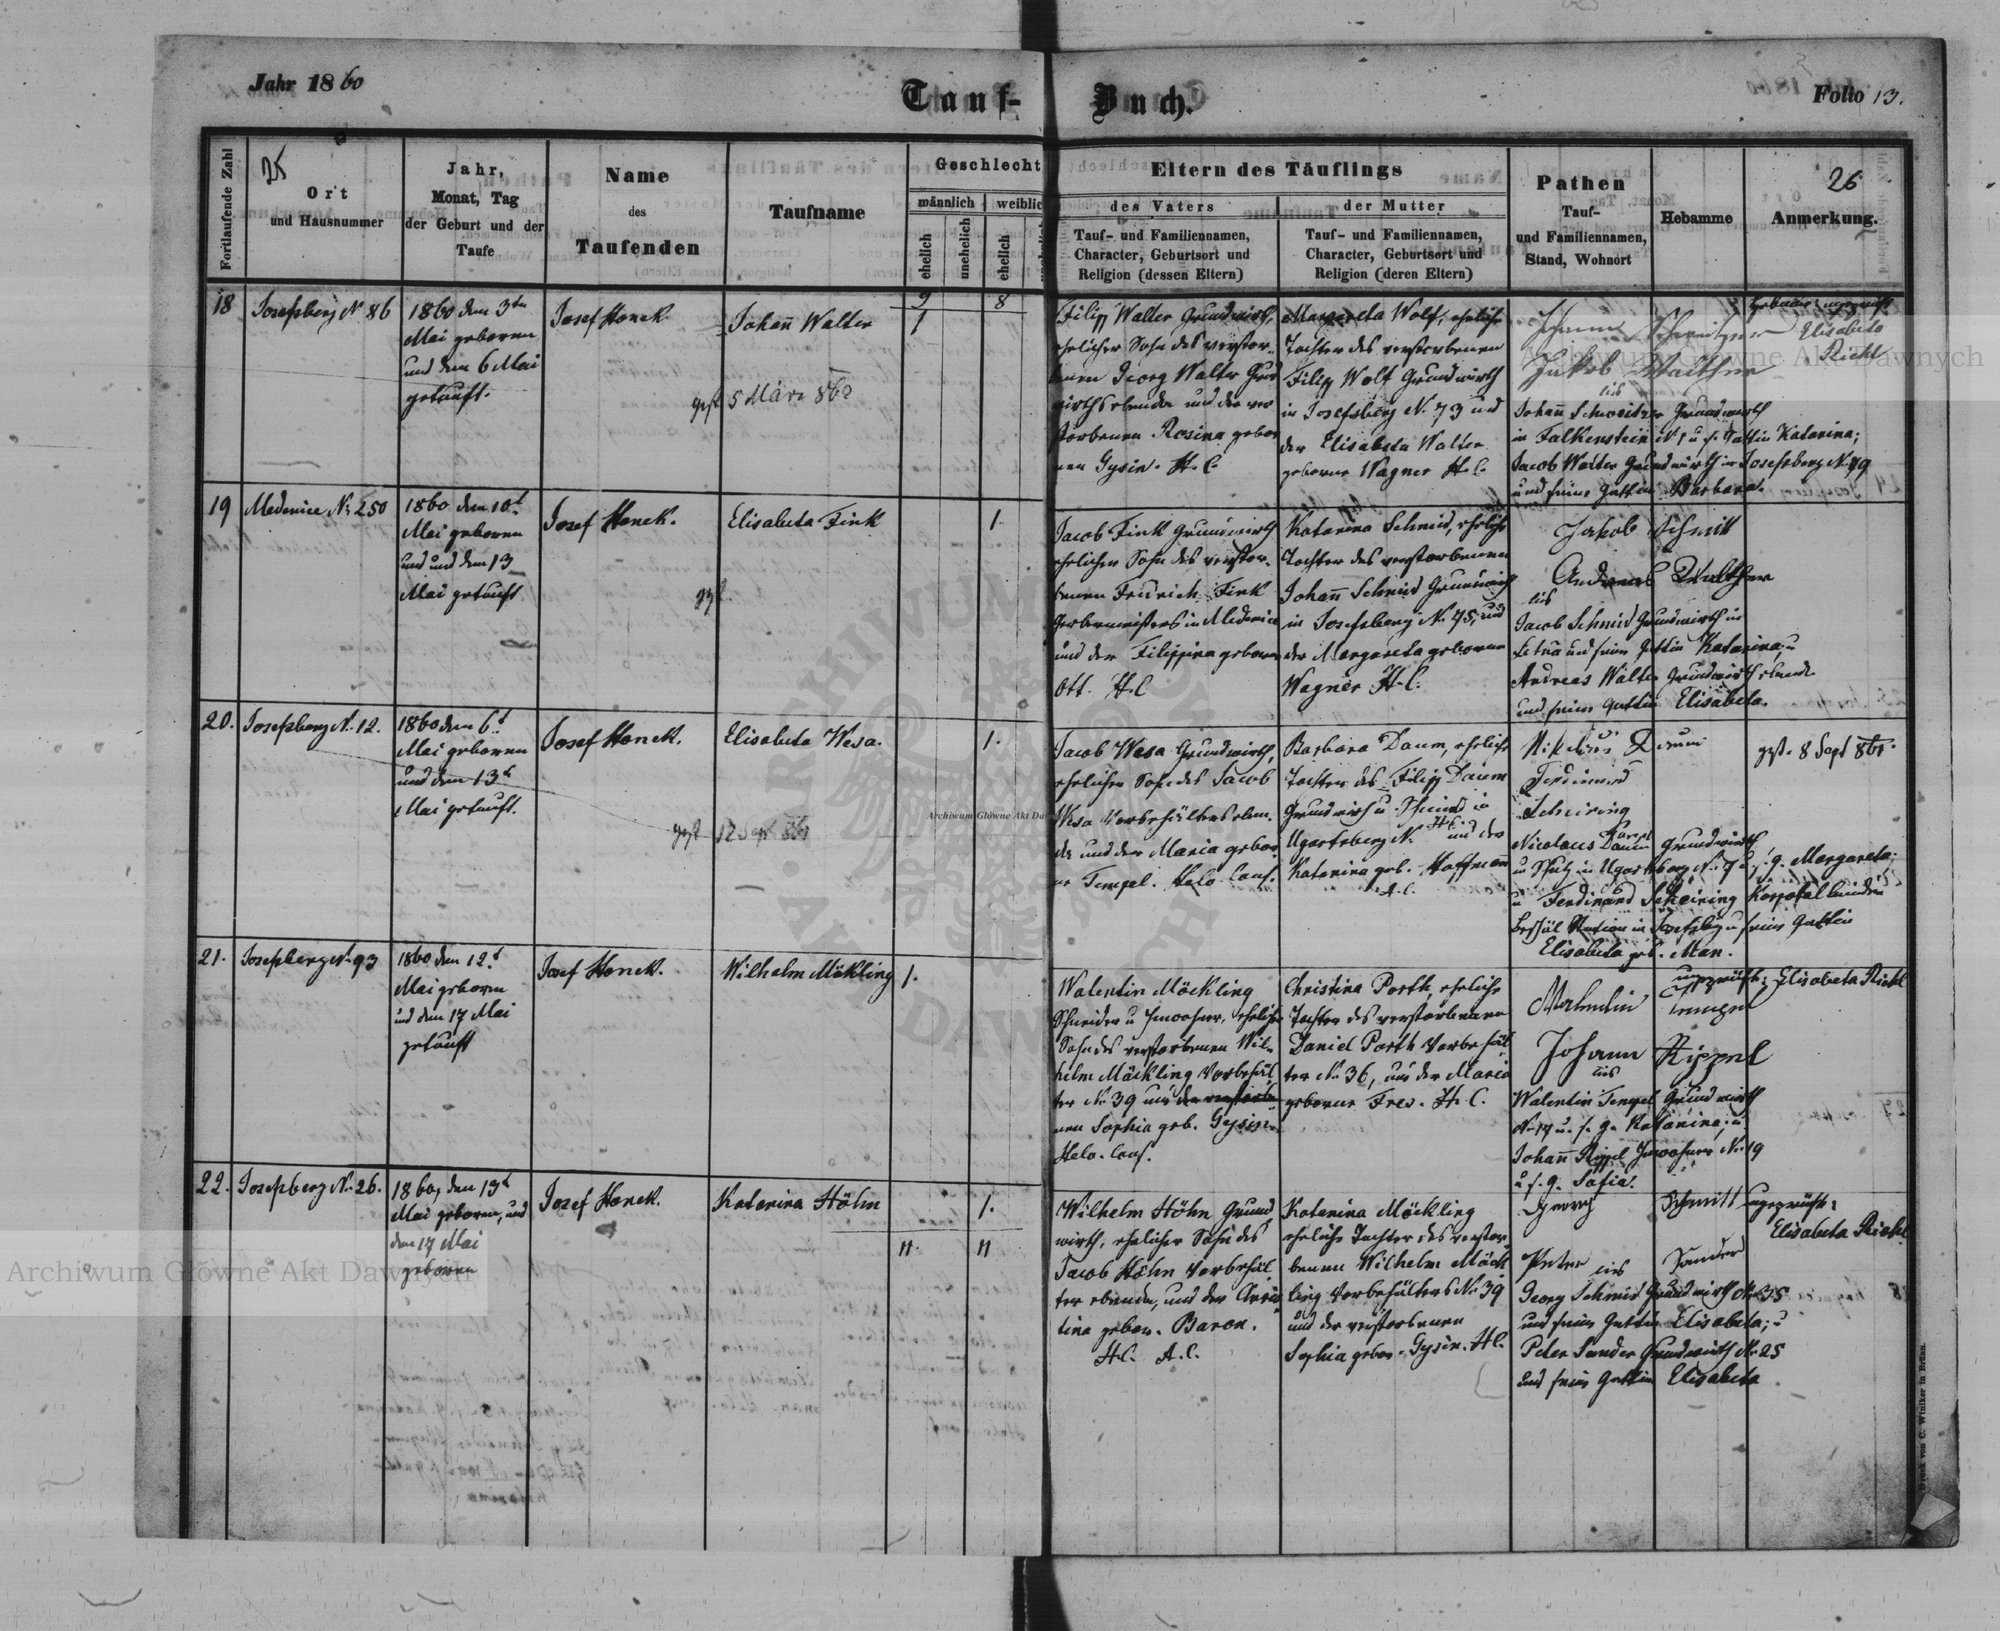 Jahr 1860
Tauf-Buch.
Folio 13.
25
26
Fortlaufende Zahl
Ort
und Hausnummer
Jahr,
Monat, Tag
der Geburt und der
Taufe
Name
des
Taufenden
Taufname
Geschlecht
männlich
weiblich
ehelich
unehelich
ehelich
Eltern des Täuflings
des Vaters
Tauf- und Familiennamen,
Character, Geburtsort und
Religion (dessen Eltern)
der Mutter
Tauf- und Familiennamen,
Character, Geburtsort und
Religion (deren Eltern)
Pathen
Tauf-
und Familiennamen,
Stand, Wohnort
Hebamme
Anmerkung.
9 8
18
Josefsberg N 86
1860 den 3ten
Mai geboren
und den 6 Mai
getauft.
Josef Honek
Johann Walter
gest 5 März 862
1
Filip Walter Grundwirth,
ehelicher Sohn des verstor-
benen Georg Walter Grund
wirths ebenda und der ver
storbenen Rosina gebor
nen Gysin. H. C.
Margareta Wolf, eheliche
Tochter des verstorbenen
Filip Wolf Grundwirth
in Josefsberg N. 73 und
der Elisabeta Walter
geborne Wagner H. C.
Johann Schweitzer
Jakob Walther
Johann Schweitzer Grundwirth
in Falkenstein N 1 u. s. Gattin Katarina;
Jacob Walter Grundwirth in Josefsberg N. 79
und seine Gattin Barbara.
Hebamme ungeprüft
Elisabeta
Riehl
19
Medenice N. 250
1860 den 10t
Mai geboren
und und den 13
Mai getauft
Josef Honek.
Elisabeta Fink
gest
1.
Jacob Fink Grundwirth
ehelicher Sohn des verstor-
benen Friedrich Fink
Gerbermeisters in Medenice
und der Filippina geborne
Ott. H. C
Katarina Schmid, eheliche
Tochter des verstorbenen
Johann Schmid Grundwirth
in Josefsberg N. 75, und
der Margareta gebornen
Wagner H. C.
Jakob Schmitt
Andreas Walther
Jacob Schmid Grundwirth in
Letnia und seine Gattin Katarina; u
Andreas Walter Grundwirth ebenda
und seine Gattin Elisabeta.
20.
Josefsberg N. 12.
1860 den 6t
Mai geboren
und den 13t
Mai getauft.
Josef Honek.
Elisabeta Wesa.
gest 12 Sept 861
1.
Jacob Wesa Grundwirth,
ehelicher Sohn des Jacob
Wesa Vorbehälters eben-
da und der Maria gebor-
ne Tempel. Helv. Conf.
Barbara Daum, eheliche
Tochter des Filip Daum
Grundwirth u. Schmied in
Ugartsberg N. und der
Katarina geb. Hoffmann
A. C.
Nikolaus Daum
Ferdinand
Scheiring
Nicolaus Daum Grundwirth
in Ugartsberg N. 7 u. s. g. Margareta;
u Ferdinand Scheiring Korporal
Beschäl Station in Josefsberg u seine Gattin
Elisabeta geb. Man.
gest. 8 Sept 861.
21.
Josefsberg N. 93
1860 den 12.t
Mai geboren
und den 17 Mai
getauft
Josef Honek.
Wilhelm Möckling
1.
Walentin Möckling
Schneider u Inwohner, ehelicher
Sohn des verstorbenen Wil-
helm Möckling Vorbehäl
ter N. 39 und der verstorbe
nen Sophia geb. Gysin-
Helv. Conf.
Christina Porth, eheliche
Tochter des verstorbenen
Daniel Porth Vorbehäl
ter N. 36, und der Maria
geborne Frey. H. C.
Walentin Tempel
Johann Rippel
Walentin Tempel Grundwirth
N. 17 u. s. g. Katarina; u.
Johann Rippel Inwohner N. 19
u s. g. Sofia.
ungeprüft: Elisabeta Riehl
22.
Josefsberg N. 26.
1860, den 13t
Mai geboren, und
den 17 Mai
geboren
Josef Honek.
Katarina Höhn
1.
11. 11
Wilhelm Höhn Grund
wirth, ehelicher Sohn des
Jacob Höhn Vorbehäl
ter ebenda, und der Chris
tina gebor. Baron.
H. C. A. C.
Katarina Möckling
eheliche Tochter des verstor
benen Wilhelm Möck
ling Vorbehälters N. 39
und der verstorbenen
Sophia gebor. Gysin. H. C.
Georg Schmitt
Peter Sander
Georg Schmid Grundwirth N. 35
und seine Gattin Elisabeta; u
Peter Sander Grundwirth N. 25
und seine Gattin Elisabeta
ungeprüft:
Elisabeta Riehl
Druck von C. Winiker in Brünn.
Archiwum Główne Akt Dawnych
Archiwum Główne Akt Dawnych
Archiwum Główne Akt Da